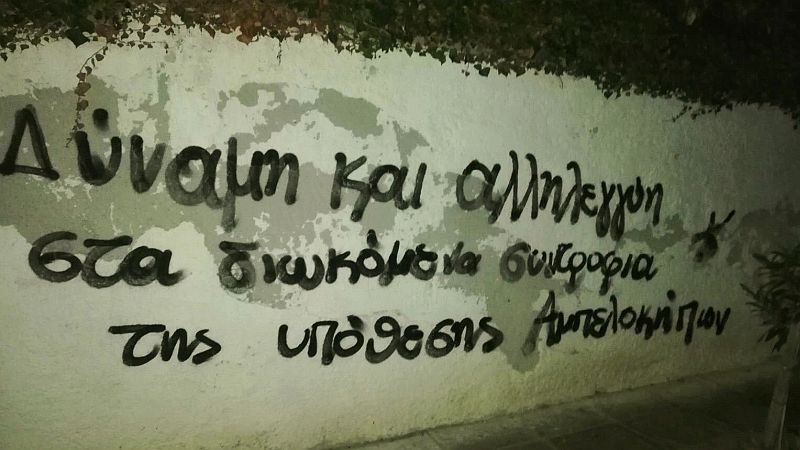 Δύναμη και αλληλεγγύη
στα διωκόμενα συντρόφια
της υπόθεσης Αμπελοκήπων